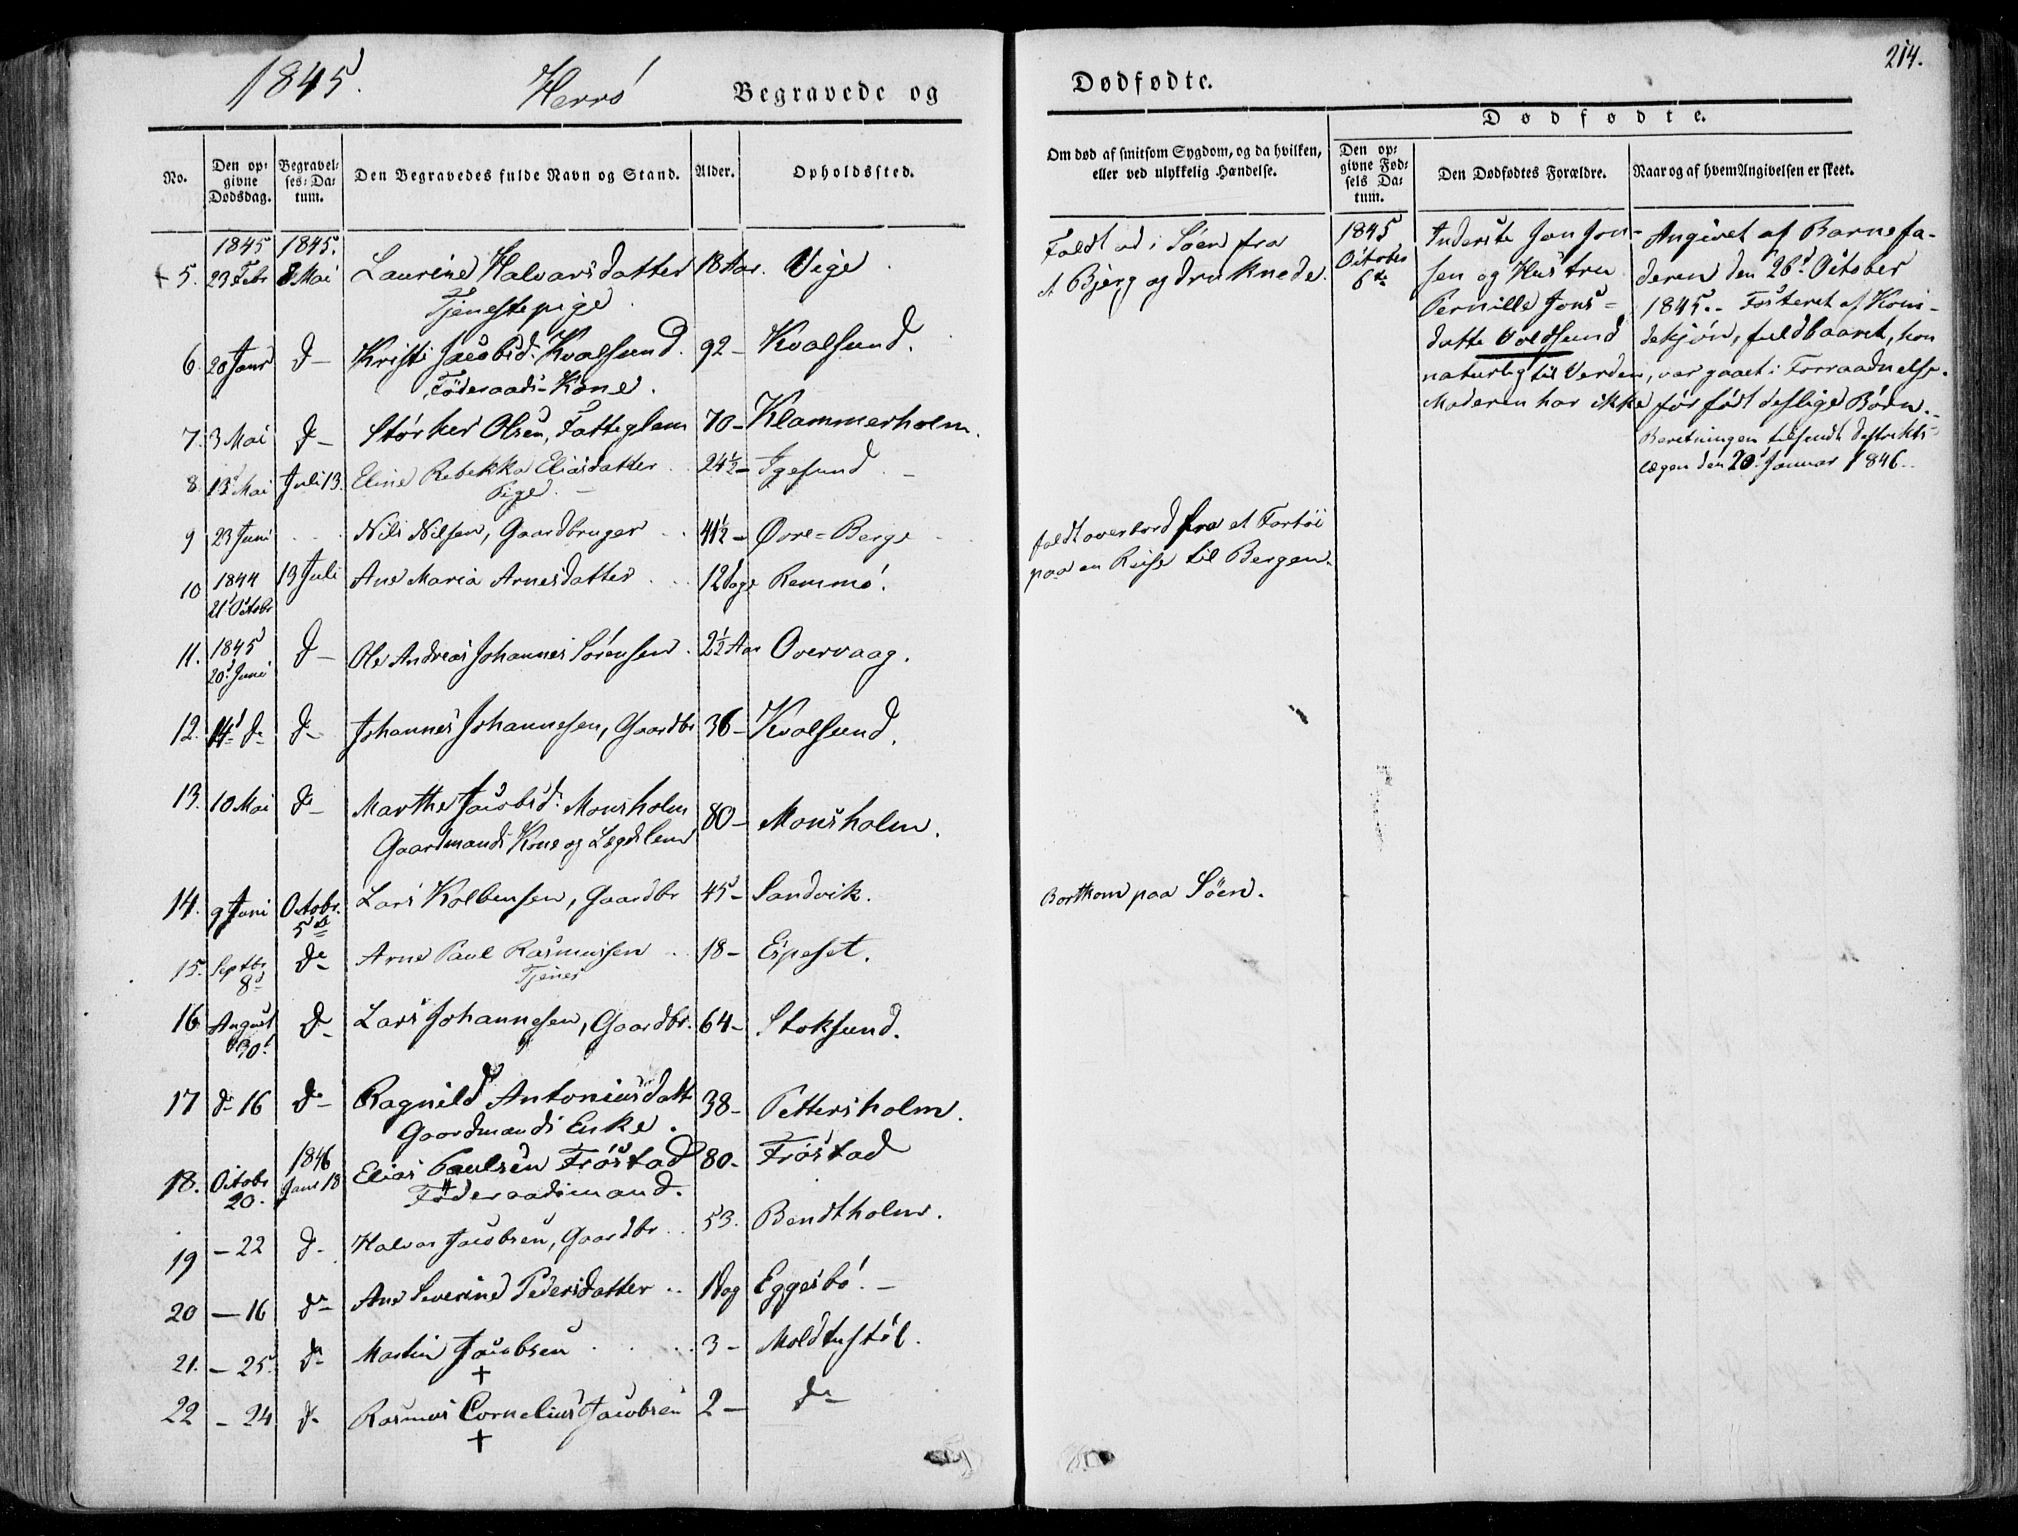 1845. Herrö Begravede og
No. Den opgivne Dødsdag. Begravelses-Datum. Den Begravedes fulde Navn og Stand. Alder. Opholdssted.
5. 1845 23 Febr 1845. 8 Mai Laurine Halvarsdatter 18 Aar. Vige.
Tjenestepige.
6. 20 Janr d- Kristi Jacobsd. Kvalsund. 92- Kvalsund.
Föderaads-Kone.
7. 3 Mai d- Störker Olsen, Fattiglem 70- Klammerholm.
8. 13 Mai Juli 13. Eline Rebekka Eliasdatter 24½- Igesund -
Pige. -
9 23 Juni Nils Nilsen, Gaardbruger 41½- Øvre-Berge
10 1844 21 Octobr 13 Juli Ane Maria Arnesdatter 12 dage Remmö.
11. 1845 20 Juni d- Ole Andreas Johannes Sörensen. 2½ Aar Overvaag.
12. 14 d- d- Johannes Johannesen, Gaardbr 36- Kvalsund.
13. 10 Mai d- Marthe Jacobsd. Monsholm
Gaardmands Kone og Lægdslem 80- Monsholm.
14. 9 Juni Octobr. 5te Lars Kolbensen, Gaardbr 45- Sandvik.
15. Septbr 8 d- Arne Paul Rasmussen 18- Espeset.
Tjener
16 August 30 d- Lars Johannesen, Gaardbr. 64- Stoksund.
17 d- 16 d- Ragnild Antoniusdatt 38- Pettersholm.
Gaardmands Enke.
18. Octobr 20. 1846 Janr 18 Elias Paulsen Fröstad 80- Fröstad
Föderaadsmand.
19 - 22 d- Halvar Jacobsen, Gaardbr. 53. Bendtholm.
20 - 16 d- Ane Severine Pedersdatter .. 1 Dag Eggesbö. -
21. - 25. d- Martin Jacobsen 3- Moldtustöl.
+
22 - 24 d- Rasmus Cornelius Jacobsen 2- d-
+
Dødfødte. 214.
Dødfødte.
Om død af smitsom Sygdom, og da hvilken, eller ved ulykkelig Hændelse. Den opgivne Fødsels Datum. Den Dødfødtes Forældre. Naar og af hvem Angivelsen er skeet.
Faldt ud i Söen fra
et Bjerg og druknede.
faldt overbord fra et Fartöi
paa en Reise til Bergen.
Bortkom paa Söen.
1845
October
6te
Inderste Jon Jon-
sen og Hustru
Pernille Jons-
datte Voldsund
Angivet af Barnefa-
deren den 26 October
1845.- Fosteret af Kvin-
dekjön, fuldbaaret, kom
naturlig til Verden, var gaaet i Forraadnelse.
Moderen har ikke för födt deslige Börn.-
Beretningen tilsendt Destrikts-
lægen den 20 Januar 1846.